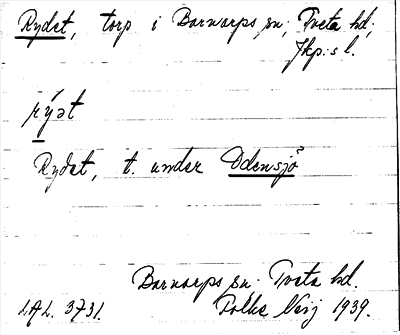 Rydet, torp i Barnarps sn; Tveta hd;
Jkp:s l.
rýǝt
Rydet, t. under Odensjö
Barnarps sn. Tveta hd.
LAL. 3731. Folke Nerj 1939.